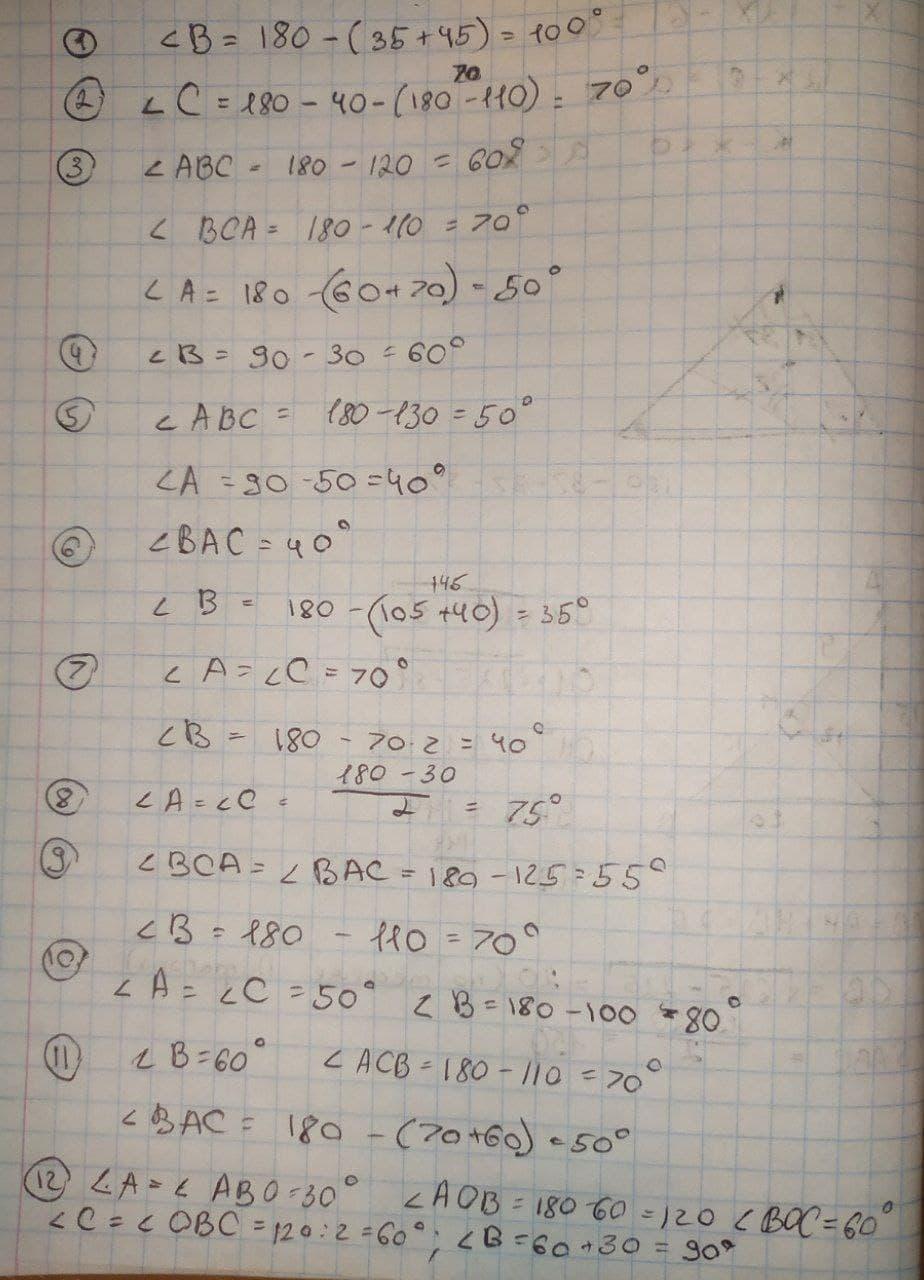 ① ∠B = 180 - (35 + 45) = 100°
70
② ∠C = 180 - 40 - (180 - 110) = 70°
③ ∠ABC = 180 - 120 = 60°
∠BCA = 180 - 110 = 70°
∠A = 180 - (60 + 70) = 50°
④ ∠B = 90 - 30 = 60°
⑤ ∠ABC = 180 - 130 = 50°
∠A = 90 - 50 = 40°
⑥ ∠BAC = 40°
+45
∠B = 180 - (105 + 40) = 35°
⑦ ∠A = ∠C = 70°
∠B = 180 - 70 · 2 = 40°
⑧ ∠A = ∠C = (180 - 30)/2 = 75°
⑨ ∠BCA = ∠BAC = 180 - 125 = 55°
∠B = 180 - 110 = 70°
⑩ ∠A = ∠C = 50° ∠B = 180 - 100 = 80°
⑪ ∠B = 60° ∠ACB = 180 - 110 = 70°
∠BAC = 180 - (70 + 60) = 50°
⑫ ∠A = ∠ABO = 30° ∠AOB = 180 - 60 = 120 ∠BOC = 60°
∠C = ∠OBC = 120 : 2 = 60°; ∠B = 60 + 30 = 90°